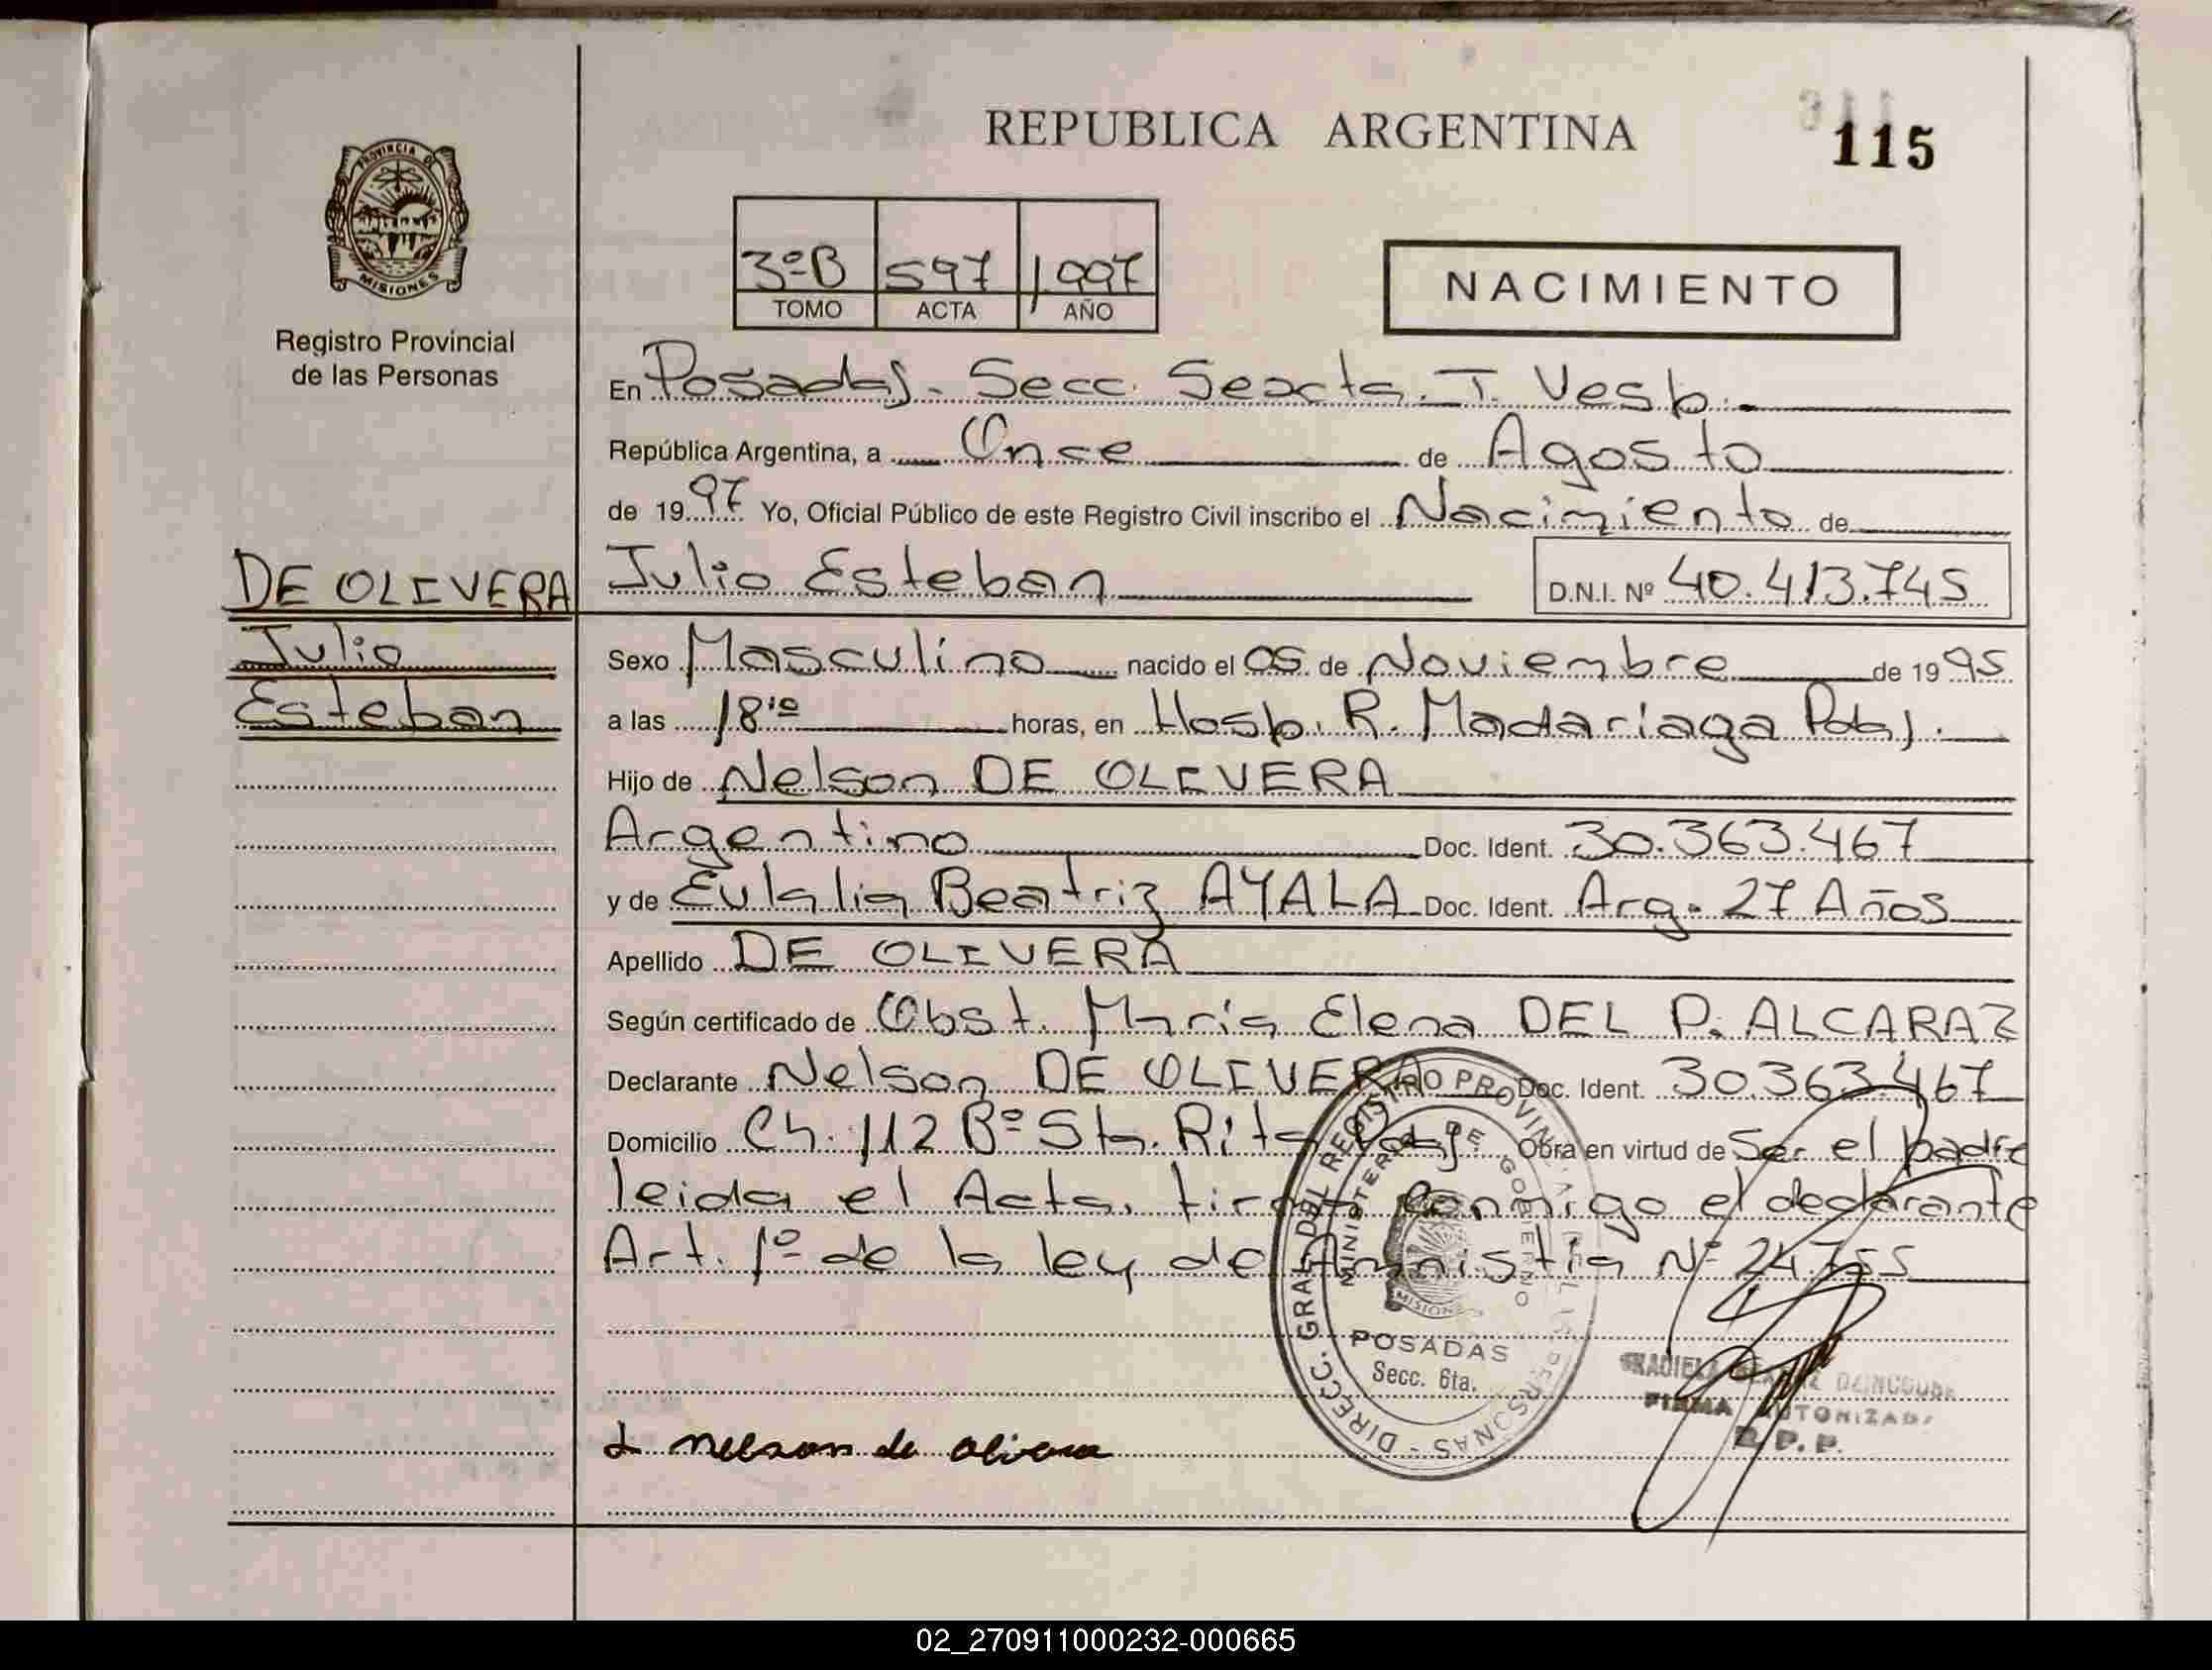 REPUBLICA ARGENTINA
115
PROVINCIA DE
MISIONES
Registro Provincial
de las Personas
3ºB 597 1.997
TOMO ACTA AÑO
NACIMIENTO
En Posadas - Secc. Sexta. T. Vesp.
República Argentina, a Once de Agosto
de 1997 Yo, Oficial Público de este Registro Civil inscribo el Nacimiento de
Julio Esteban D.N.I. Nº 40.413.745
DE OLIVERA
Julio
Esteban
Sexo Masculino nacido el 05 de Noviembre de 1995
a las 18'º horas, en Hosp. R. Madariaga Pdas.
Hijo de Nelson DE OLIVERA
Argentino Doc. Ident. 30.363.467
y de Eulalia Beatriz AYALA Doc. Ident. Arg. 27 Años
Apellido DE OLIVERA
Según certificado de Obst. María Elena DEL P. ALCARAZ
Declarante Nelson DE OLIVERA Doc. Ident. 30.363.467
Domicilio Ch. 112 Bº Sta. Rita Pdas. Obra en virtud de Ser el padre
leida el Acta, firma Conmigo el declarante
Art. 1º de la ley de Amnistia Nº 24.755
DIRECC. GRAL. DEL REGISTRO PROVINCIAL DE LAS PERSONAS -
MINISTERIO DE GOBIERNO
MISIONES
POSADAS
Secc. 6ta.
FIRMA AUTORIZADA
R.P.P.
Nelson de Olivera
02_270911000232-000665